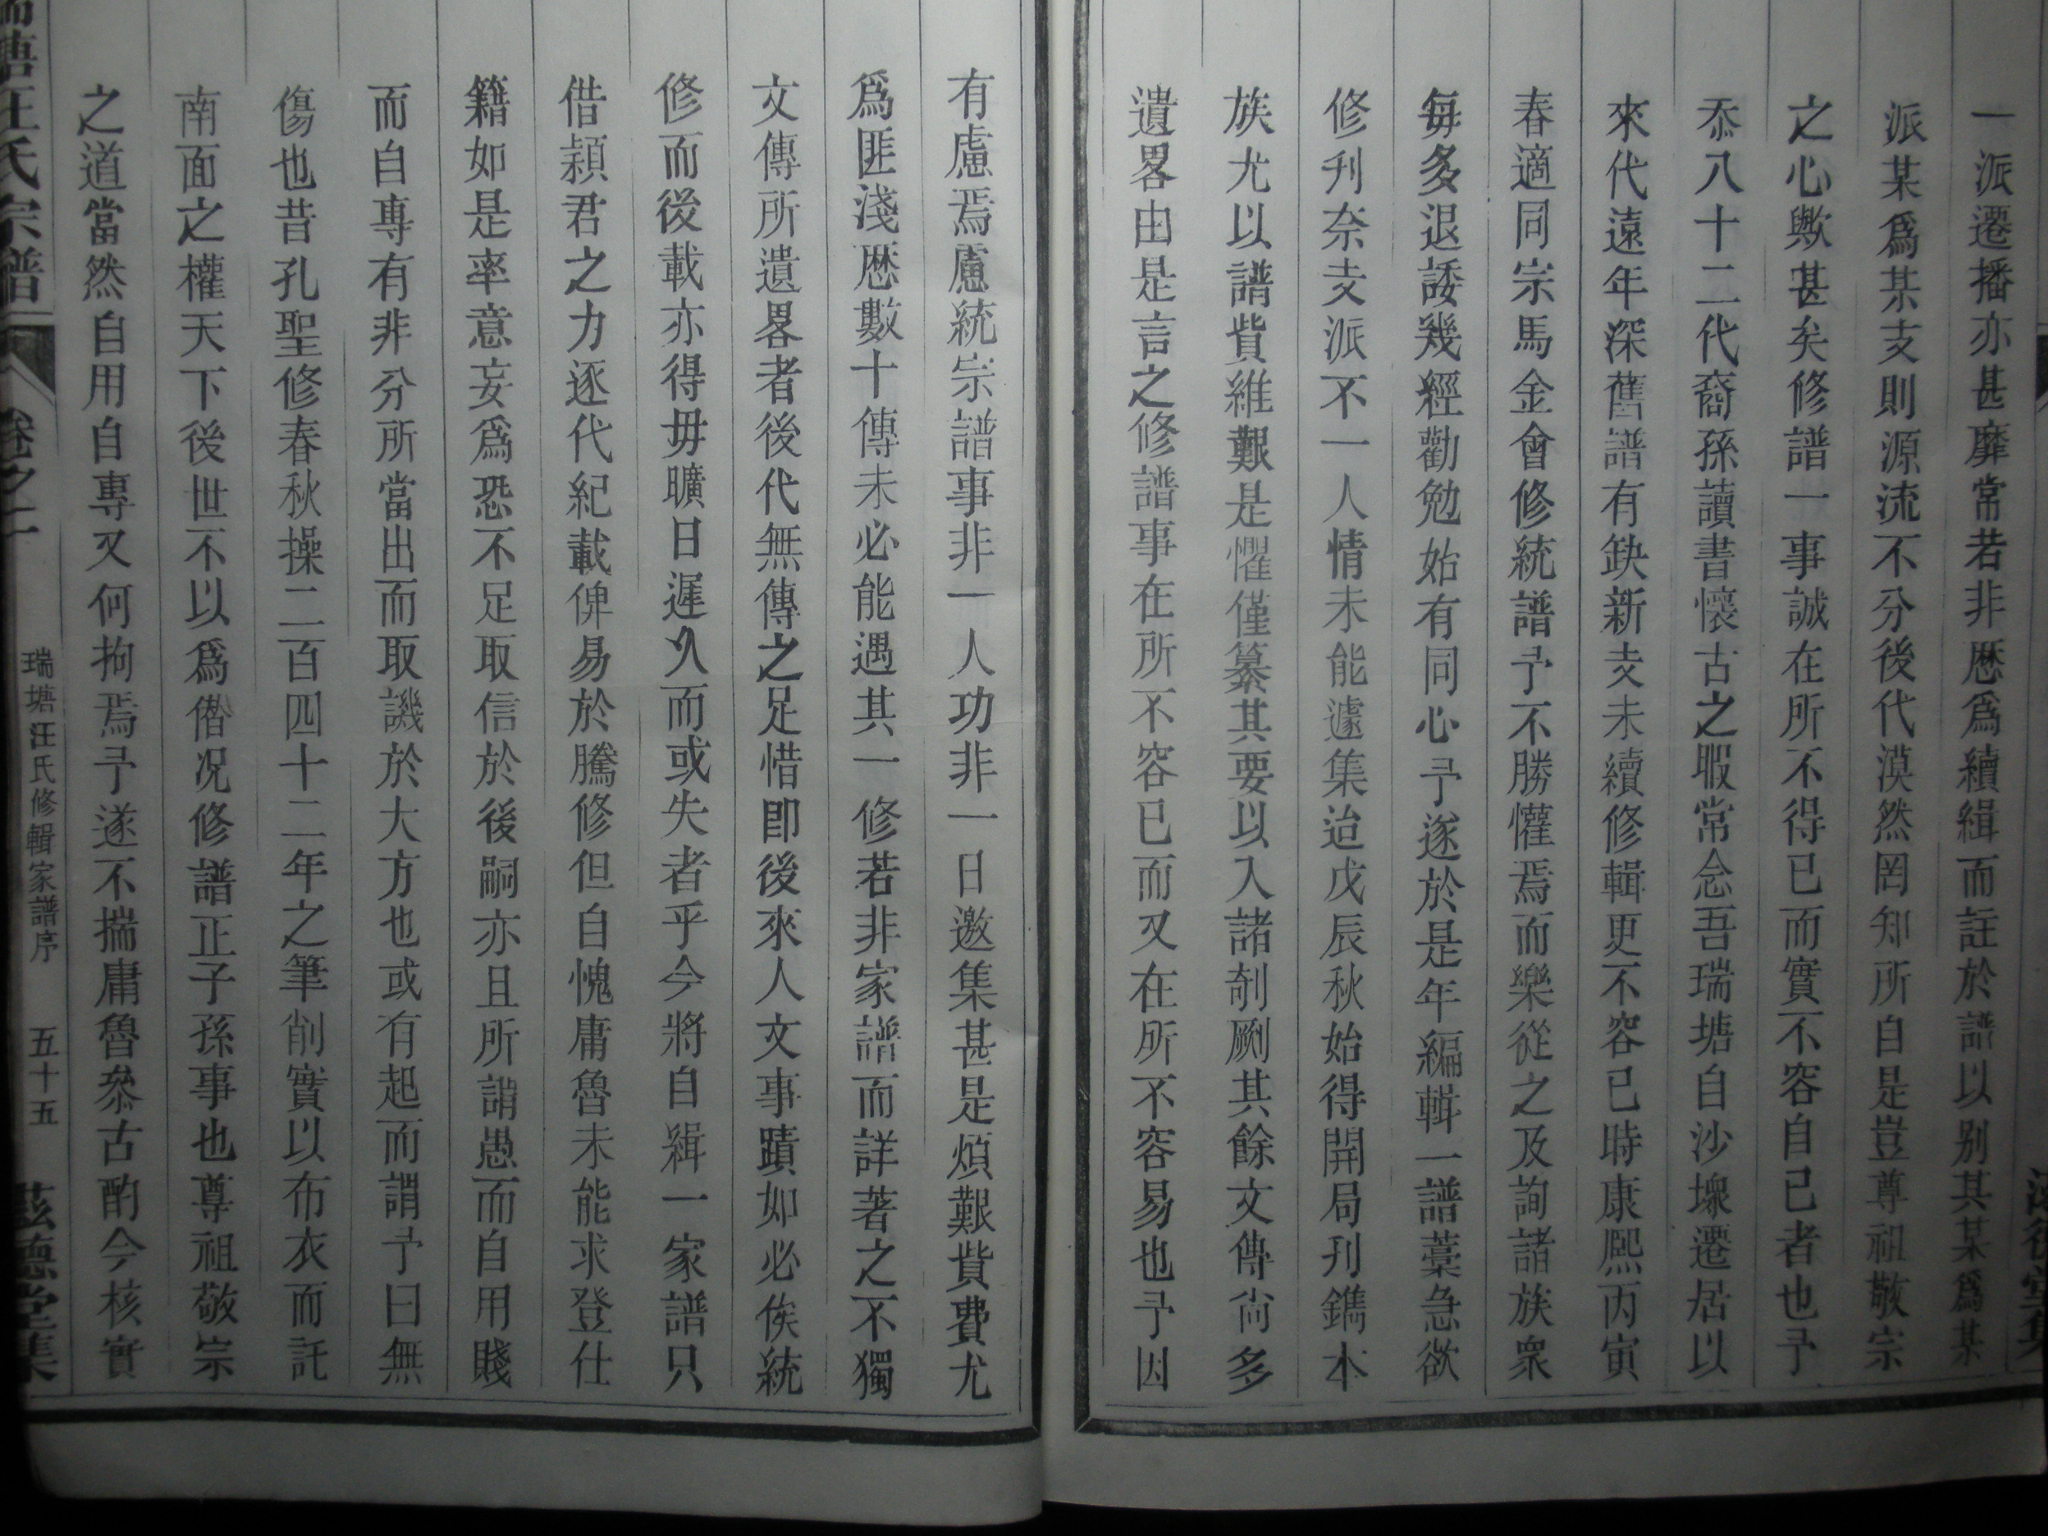 一派遷播亦甚靡常若非歷爲續緝而註於譜以别其某爲某
派某爲某支則源流不分後代漠然罔知所自是豈尊祖敬宗
之心歟甚矣修譜一事誠在所不得已而實不容自已者也予
忝八十二代裔孫讀書懷古之暇常念吾瑞塘自沙堘遷居以
來代遠年深舊譜有缺新支未續修輯更不容已時康熙丙寅
春適同宗馬金會修統譜予不勝懽焉而樂從之及詢諸族眾
每多退諉幾經勸勉始有同心予遂於是年編輯一譜藁急欲
修刋奈支派不一人情未能遽集迨戊辰秋始得開局刋鐫本
族尤以譜貲維艱是懼僅纂其要以入諸剞劂其餘文傳尙多
遺畧由是言之修譜事在所不容已而又在所不容易也予因
有慮焉慮統宗譜事非一人功非一日邀集甚是煩艱貲費尤
爲匪淺歷數十傳未必能遇其一修若非家譜而詳著之不獨
文傳所遺畧者後代無傳之足惜即後來人文事蹟如必俟統
修而後載亦得毋曠日遲久而或失者乎今將自緝一家譜只
借穎君之力逐代紀載俾易於騰修但自愧庸魯未能求登仕
籍如是率意妄爲恐不足取信於後嗣亦且所謂愚而自用賤
而自專有非分所當出而取譏於大方也或有起而謂予曰無
傷也昔孔聖修春秋操二百四十二年之筆削實以布衣而託
南面之權天下後世不以爲僭况修譜正子孫事也尊祖敬宗
之道當然自用自專又何拘焉予遂不揣庸魯叅古酌今核實
瑞塘汪氏宗譜 卷之一 瑞塘汪氏修輯家譜序 五十五 德堂集